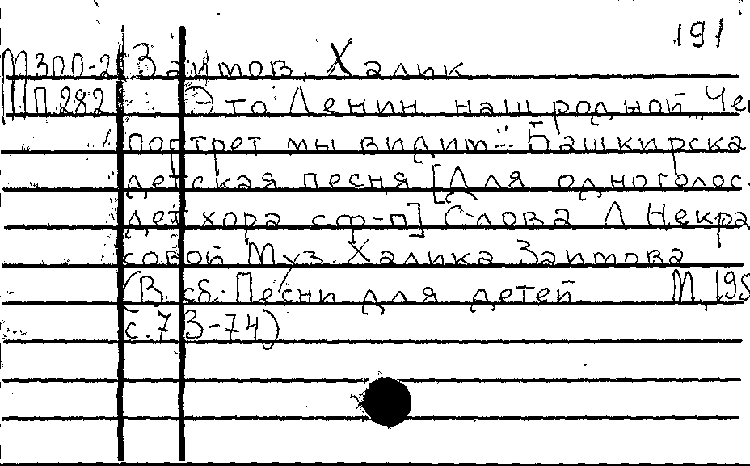 191
М300-2 Заимов, Халик
П.282 Это Ленин наш родной. Чей
портрет мы видим". Башкирска
детская песня [Для одноголос.
дет хора с ф-п] Слова Л Некра
совой Муз. Халика Заимова
(В сб. Песни для детей М, 195
с. 73-74)